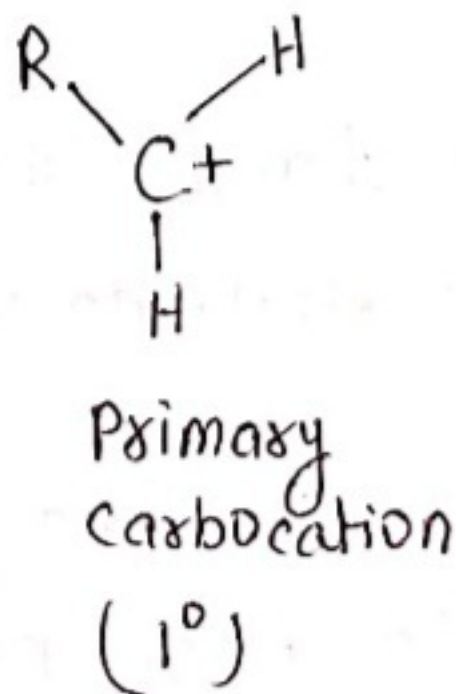 R H
C+
H
Primary
carbocation
(1°)